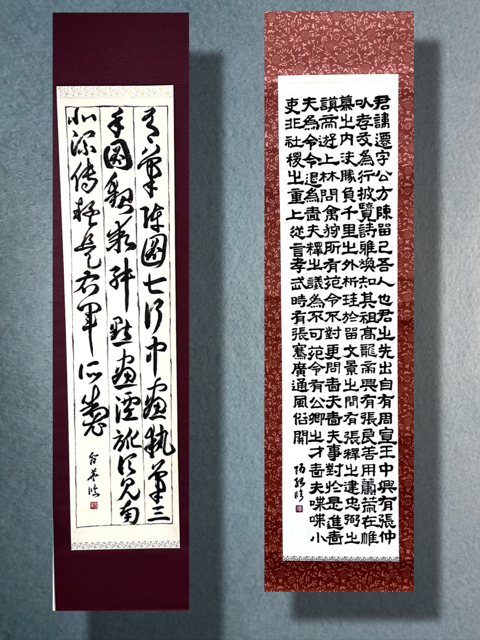 君諱遷字公方陳留己吾人也君之先出自有周宣王中興有張仲
以孝友為行披覽詩雅煥知其祖高龍帝興有張良善用籌策在帷
幕之內決勝負千里之外析珪於留文景之間有張釋之建忠弼之
謨帝遊上林問禽狩所有苑令不對更問嗇夫嗇夫事對於是進嗇
夫為令令退為嗇夫釋之議為不可苑令有公卿之才嗇夫喋喋小
吏非社稷之重上從言孝武時有張騫廣通風俗開
有筆陣圖七行中畫執筆三
手圖貌乖舛點畫湮訛頃見南
北流傳疑是右軍所製